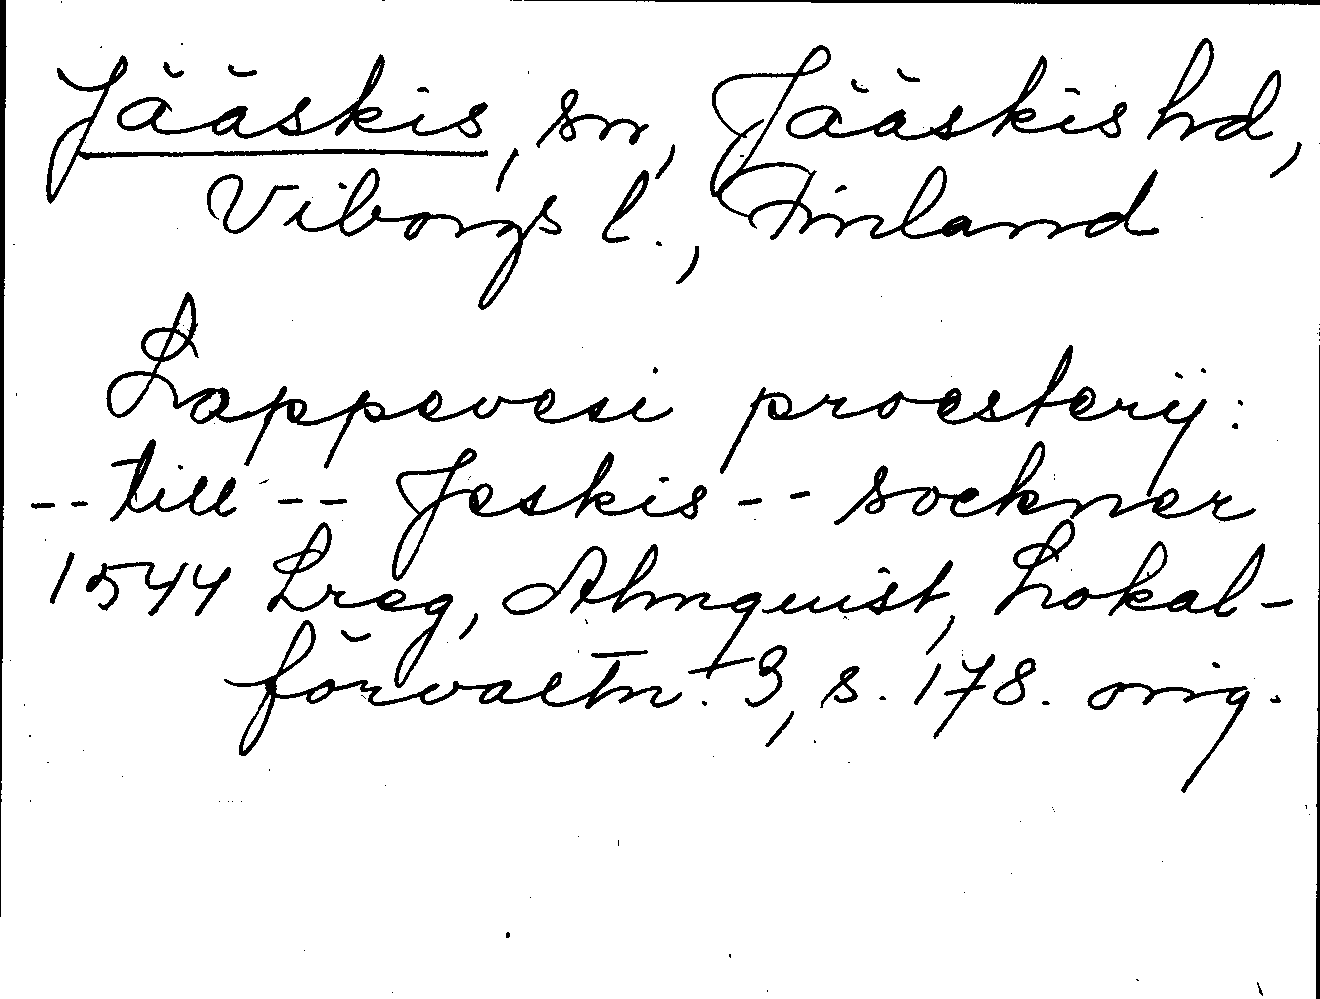 Jääskis, sn, Jääskis hd,
Viborgs l., Finland
Lappevesi proesterij:
-- till -- Jeskis -- sockner
1544 Lreg, Almquist, Lokal-
förvaltn. 3, s. 178. orig.